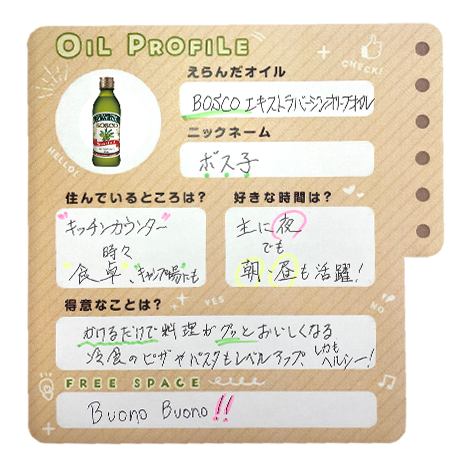 OIL PROFILE
CHECK!
HELLO!
えらんだオイル
BOSCO エキストラバージンオリーブオイル
BOSCO
ニックネーム
ボス子
住んでいるところは?
キッチンカウンター
時々
食卓、キャンプ場にも
好きな時間は?
主に夜
でも
朝・昼も活躍!
得意なことは?
YES
NO
かけるだけで料理がグッとおいしくなる
冷食のピザやパスタもレベルアップ しかもヘルシー!
FREE SPACE
Buono Buono!!